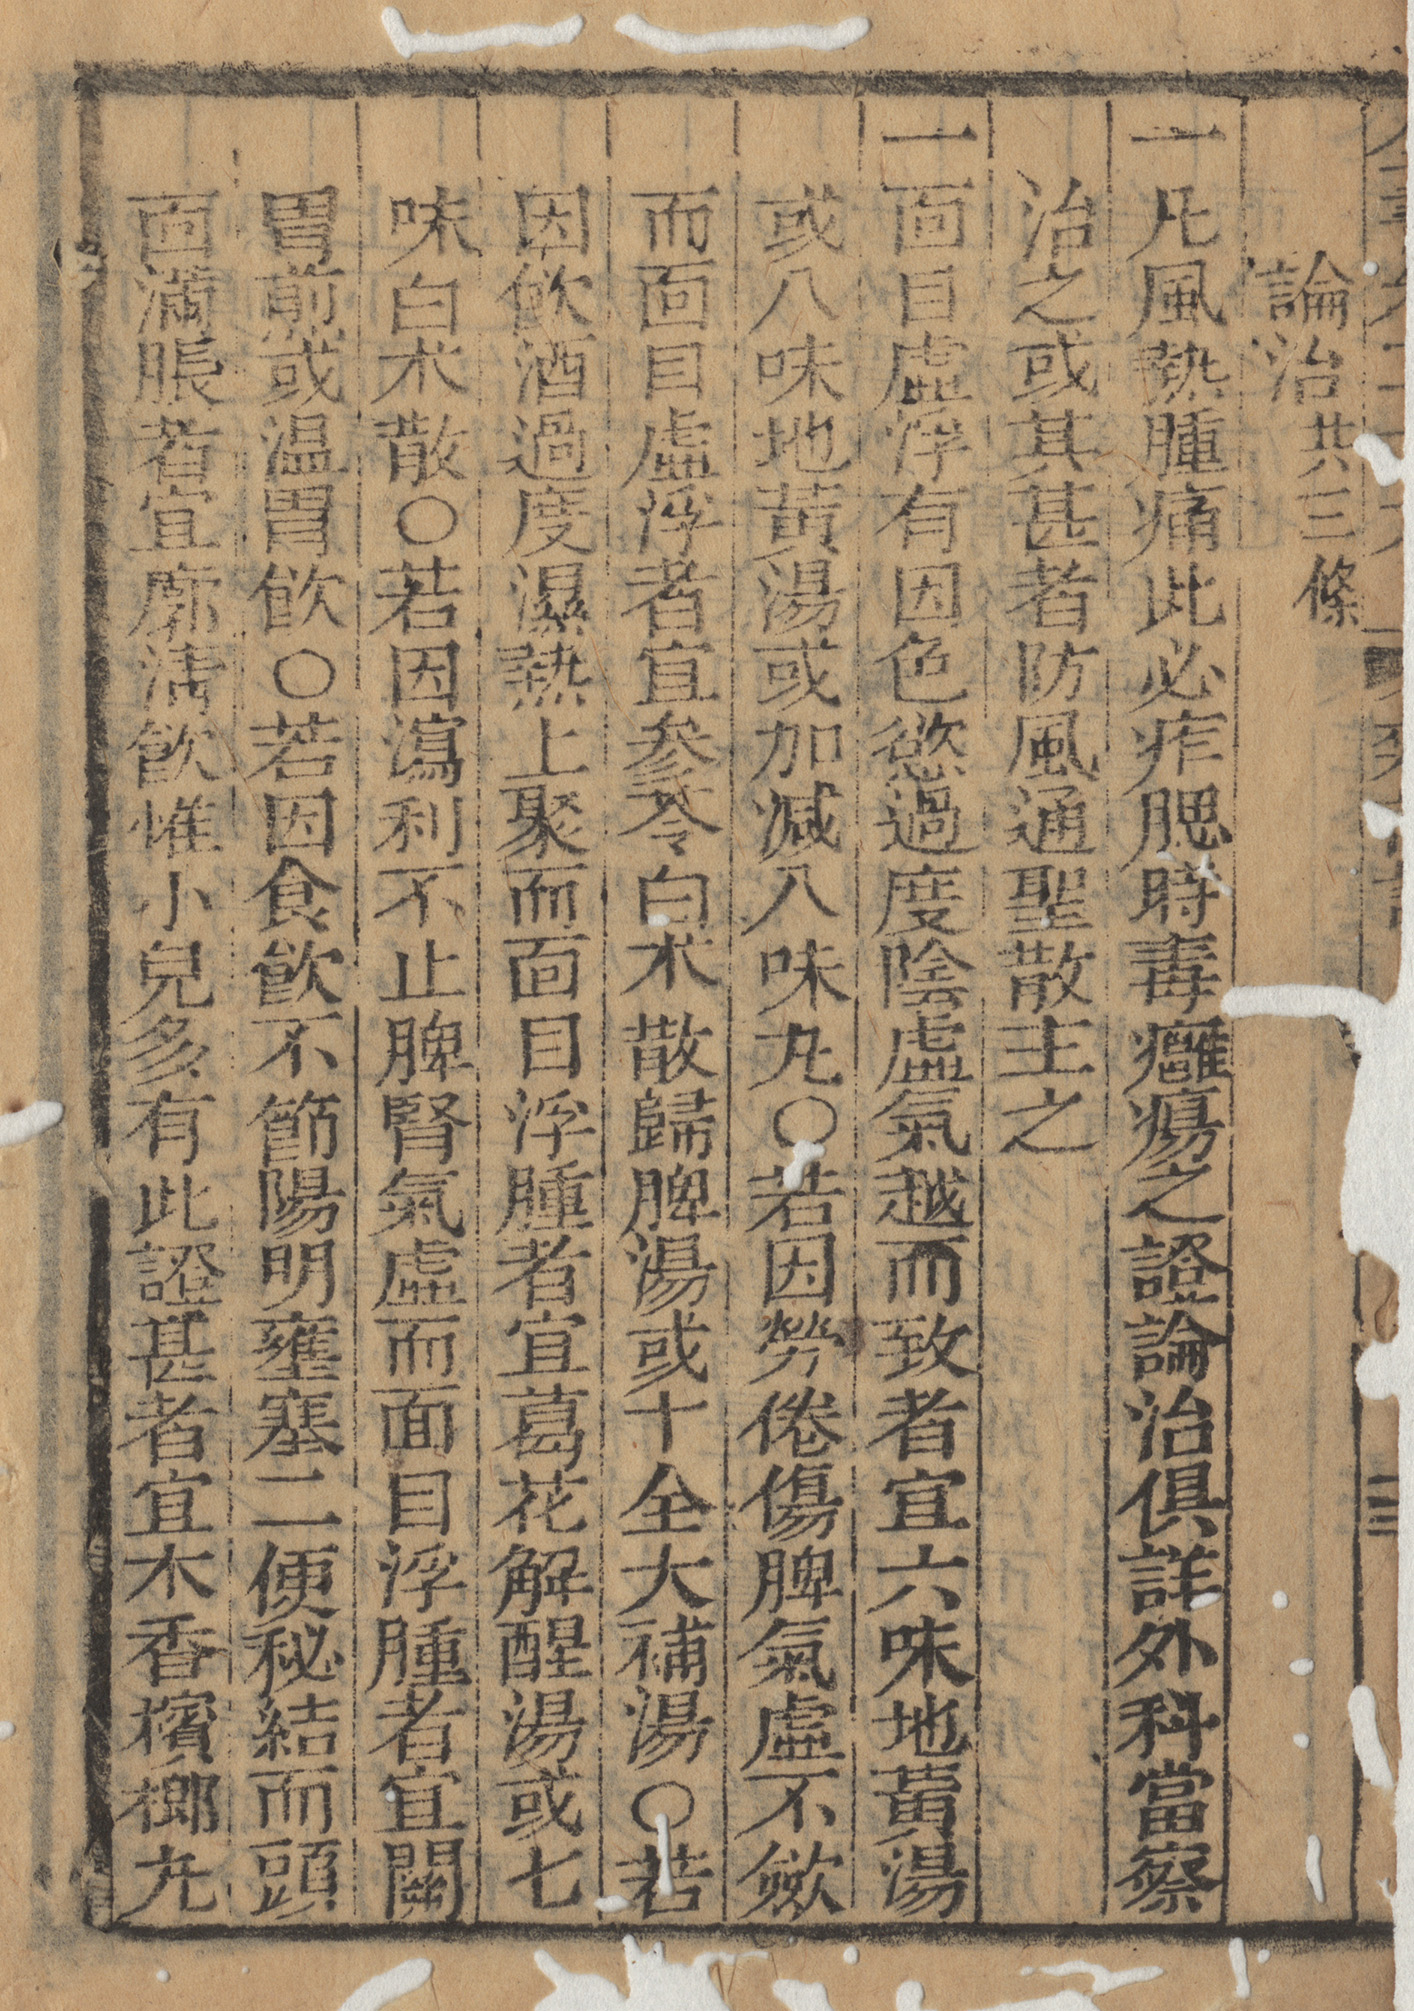 論治共三條
一凡風熱腫痛此必痄腮時毒癰瘍之證論治俱詳外科當察
治之或其甚者防風通聖散主之
一面目虛浮有因色慾過度陰虛氣越而致者宜六味地黃湯
或八味地黃湯或加減八味丸○若因勞倦傷脾氣虛不斂
而面目虛浮者宜參苓白朮散歸脾湯或十全大補湯○若
因飲酒過度濕熱上聚而面目浮腫者宜葛花解醒湯或七
味白朮散○若因瀉利不止脾腎氣虛而面目浮腫者宜關
胃煎或温胃飲○若因食飲不節陽明壅塞二便秘結而頭
面滿脹者宜廓清飲惟小兒多有此證甚者宜木香檳榔丸